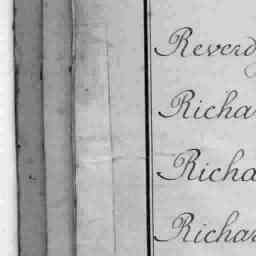 Reverd
Richar
Richa
Richar